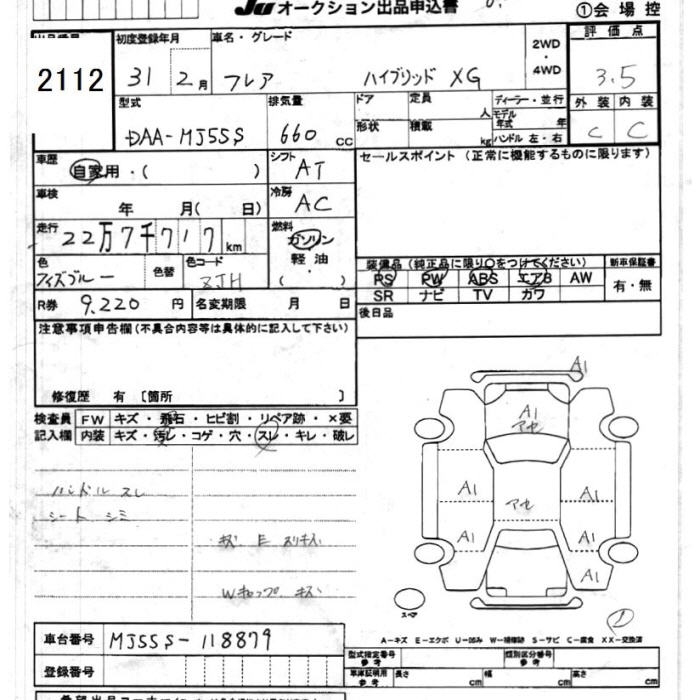 JU オークション出品申込書
①会場控
2112
初度登録年月 車名・グレード 2WD・4WD 評価点
31 2月 フレア ハイブリッド XG 3.5
型式 排気量 ドア 定員 人 ディーラー・並行 外装 内装
DAA-MJ55S 660 CC 形状 積載 kg モデル年式 年 ハンドル 左・右 C C
車歴 自家用・( ) シフト AT セールスポイント (正常に機能するものに限ります)
車検 年 月( 日) 冷房 AC
走行 22万7千717 km 燃料 ガソリン・軽油・( )
色 色替 色コード ZJH
装備品 (純正品に限り○をつけてください) 新車保証書
PS PW ABS エアB AW 有・無
SR ナビ TV カワ
R券 9,220 円 名変期限 月 日 後日品
注意事項申告欄(不具合内容等は具体的に記入して下さい)
修復歴 有 〔箇所 〕
検査員 FW キズ・飛石・ヒビ割・リペア跡・×要
記入欄 内装 キズ・汚レ・コゲ・穴・スレ・キレ・破レ
ハンドル スレ
シート シミ
Wキャップ キズ
A1
A1
アセ
A1 アセ A1
A1 A1
A1
スペア
A-キズ E-エクボ U-凹み W-補修跡 S-サビ C-腐食 XX-交換済
車台番号 MJ55S-118879
登録番号
型式指定番号 参考 類別区分番号 参考
車庫証明用 参考 長さ cm 幅 cm 高さ cm